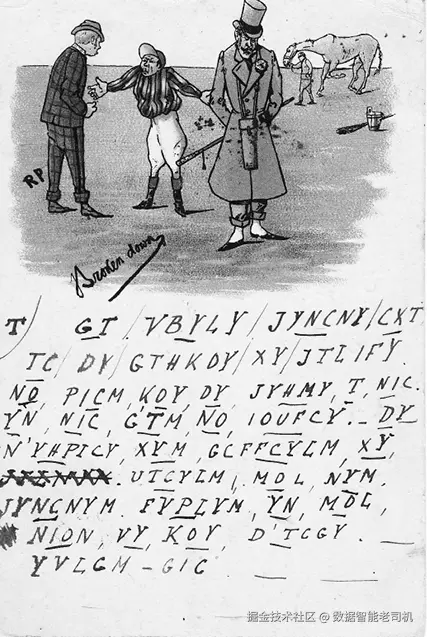 RP
Broken down
T GT / VBYLY / JYNCNY / CXT
TC / DY / GTHKDY / XY / JTLIFY.
NO, PICM, KOY, DY, JYHMY, T, NIC.
YN, NIC, G'TM, NO, IOUFCY. _ DY
N'YHPICY, XYM, GCFFCYLM, XY,
UTCYLM, MOL, NYM,
JYNCNYM. FYPLYM, YN, MOL,
NION, VY, KOY, D'TCGY. _
YVLGM - GIC
掘金技术社区 @ 数据智能老司机